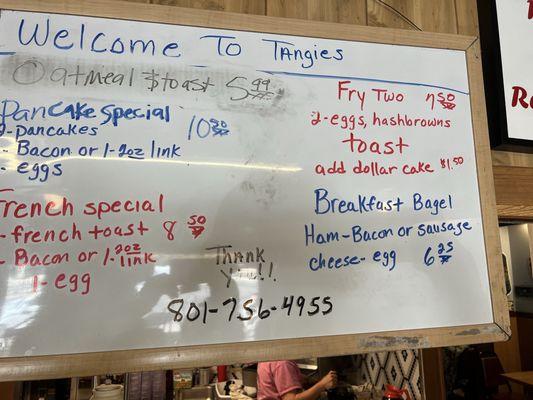 Welcome To TAngies
Oatmeal $ toast 5.99
Pancake Special
2-pancakes 10.50
- Bacon or 1-2oz link
- eggs
French special
- french toast 8.50
- Bacon or 1-2oz link
1-egg
Fry Two 7.50
2-eggs, hashbrowns
toast
add dollar cake $1.50
Breakfast Bagel
Ham-Bacon or sausage
cheese-egg 6.25
Thank
you!!
801-756-4955